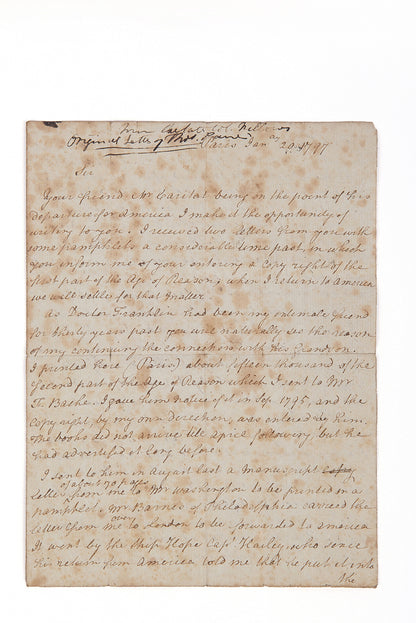 Original Letter of Thos. Paine
Paris Jany 20. 1797
Sir
Your friend Mr Caritat being on the point of his
departure for America I make it the opportunity of
writing to you. I received two letters from you with
some pamphlets a considerable time past, in which
you inform me of your entering a copy right of the
first part of the Age of Reason; when I return to America
we will settle for that matter.
As Doctor Franklin had been my intimate friend
for thirty years past you will naturally see the reason
of my continuing the connection with his Grandson.
I printed here (Paris) about fifteen thousand of the
Second part of the Age of Reason which I sent to Mr
F. Bache. I gave him notice of it in Sep. 1795, and the
Copy right, by my own direction, was entered by him.
The books did not arrive till April following, but he
had advertised it long before.
I sent to him in August last a manuscript
of about 70 pages
letter, from me to Mr Washington to be printed in a
pamphlet. Mr Barnes of Philadelphia carried the
over
letter from me to London to be forwarded to America
It went by the Ship Hope Capt Harley, who since
his return from America told me that he put it into
the